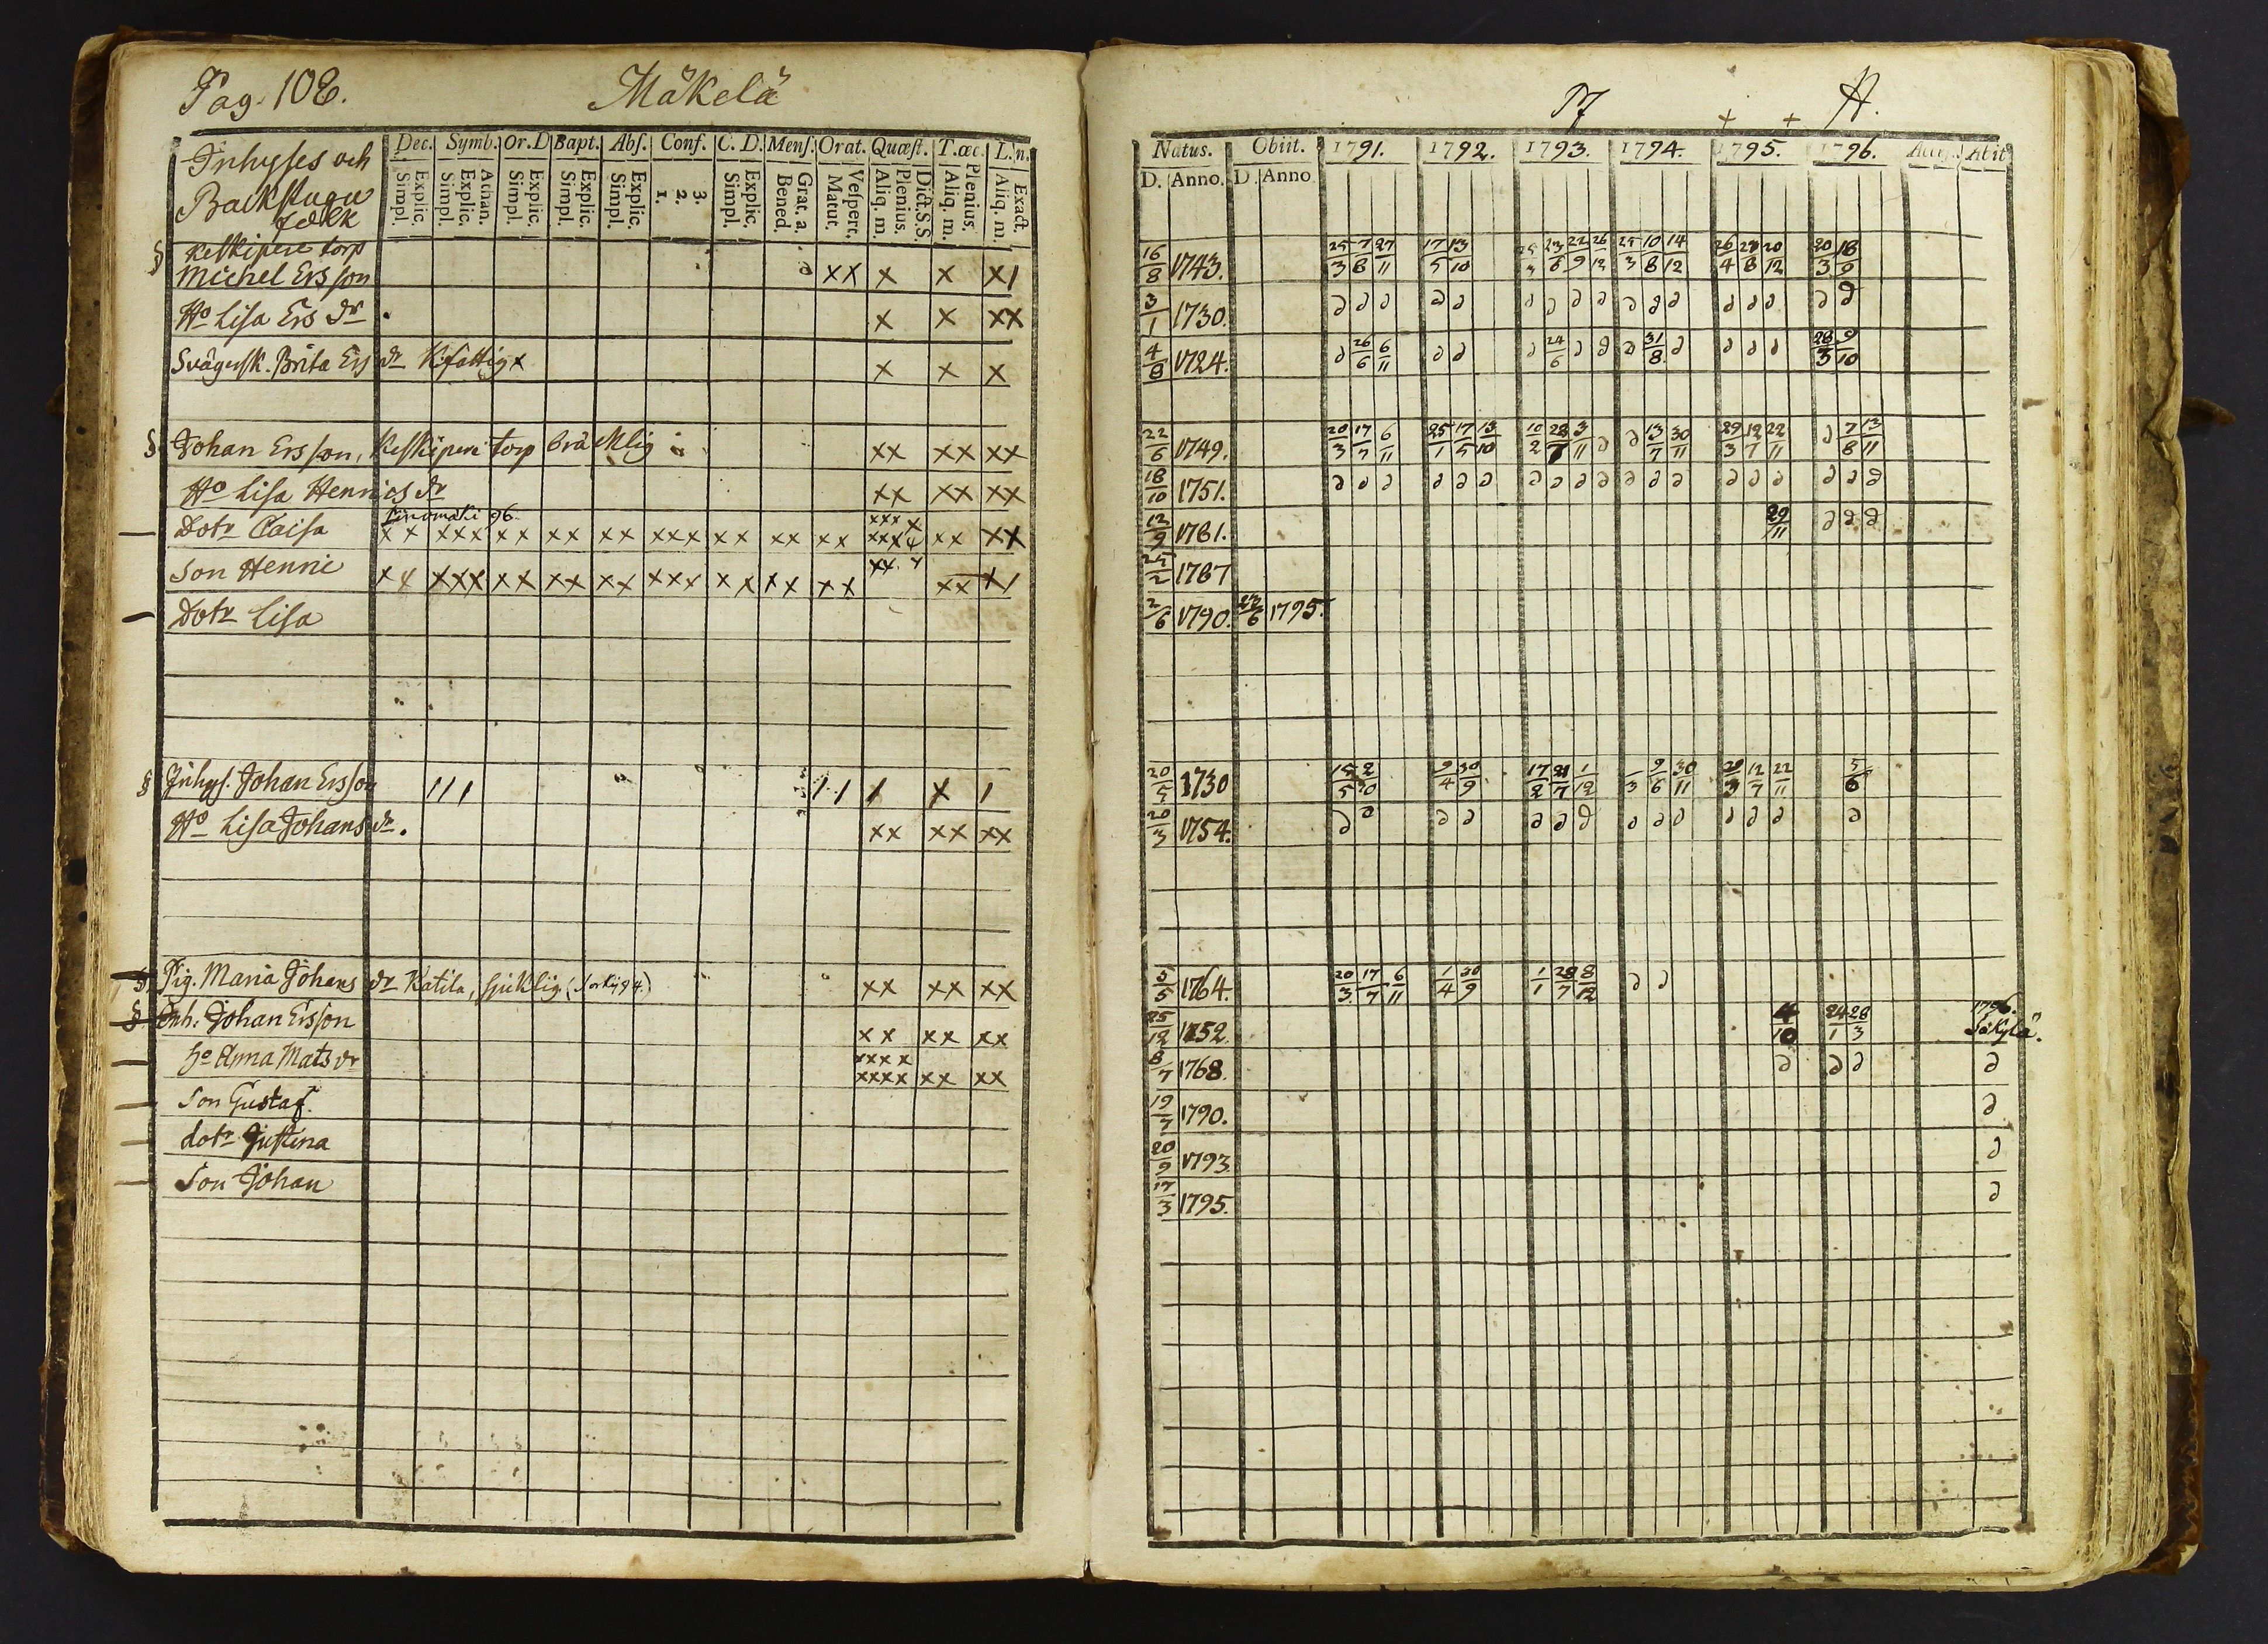 Pag. 108. Mäkelä
Inhyses och
Backstugu
folk
Dec. Symb. Or. D Bapt. Abs. Conf. C. D. Mens. Orat. Quæst. T. œc. L. n.
Explic. Simpl. Athan. Explic. Simpl. Explic. Simpl. Explic. Simpl. Explic. Simpl. 3. 2. 1. Explic. Simpl. Grat. a. Bened. Vespert. Matut. Dict. S. S. Plenius. Aliq. m. Plenius. Aliq. m. Exact. Aliq. m.
§ Keskipere torp
Michel Ersson xx x x x1
Ho Lisa Ers dr x x xx
Svägersk. Brita Ers dr Kfattig x x x
§ Johan Ersson, Keskipere torp bräcklig xx xx xx
Ho Lisa Henrics dr xx xx xx
Dotr Caisa 96.
Son Henric
Dotr Lisa
§ Inhys. Johan Ersson 111 11 1 x 1
Ho Lisa Johans dr. xx xx xx
§ Pig. Maria Johans dr Katila, sjuklig xx xx xx
§ Inh. Johan Ersson xx xx xx
ho Anna Mats dr xxxx xxxx xx xx
Son Gustaf.
dotr Justina
Son Johan
Natus. Obiit. 1791. 1792. 1793. 1794. 1795. 1796. Access. Abiit
D. Anno. D. Anno
16/8 1743. 25/3 7/8 27/11 17/5 13/10 25/3 23/6 22/9 26/12 25/3 10/8 14/12 26/4 23/8 20/12 20/3 18/9
3/1 1730.
4/8 1724. 26/6 6/11 24/6 31/8 28/3 9/10
22/6 1749. 20/3 17/7 6/11 25/1 17/5 13/10 10/2 28/7 3/11 13/7 30/11 29/3 12/7 22/11 7/8 13/11
18/10 1751.
12/9 1781. 29/11
1787
2/6 1790. 23/6 1795.
20/5 1730 15/5 2/10 9/4 30/9 17/2 21/7 1/12 9/6 30/11 29/3 12/7 22/11 5/6
20/3 1754.
5/5 1764. 20/3 17/7 6/11 1/4 30/9 1/1 28/7 8/12
25/12 1752. 4/10 24/1 28/3 1796. Säkylä.
8/7 1768.
19/7 1790.
20/9 1793.
17/3 1795.